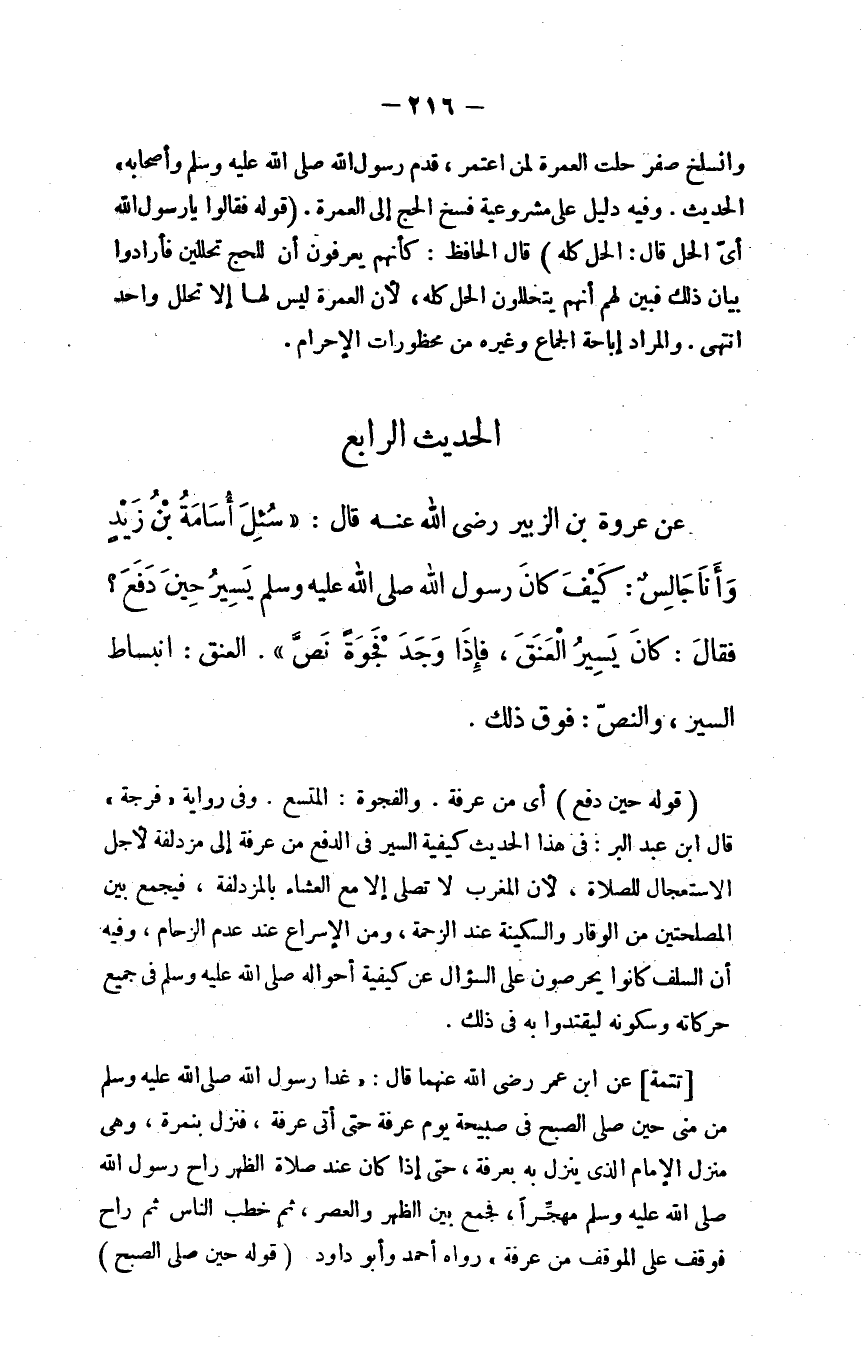 — ٢١٦ —
وانسلخ صفر حلت العمرة لمن اعتمر ، قدم رسول الله صلى الله عليه وسلم وأصحابه،
الحديث . وفيه دليل على مشروعية فسخ الحج إلى العمرة . (قوله فقالوا يارسول الله
أىّ الحل قال : الحل كله ) قال الحافظ : كأنهم يعرفون أن للحج تحللين فأرادوا
بيان ذلك فبين لهم أنهم يتحللون الحل كله ، لأن العمرة ليس لهـا إلا تحلل واحد
انتهى . والمراد إباحة الجماع وغيره من محظورات الإحرام .
الحديث الرابع
عن عروة بن الزبير رضى الله عنـه قال : « سُئِلَ أُسَامَةُ بْنُ زَيْدٍ
وَأَنَا جَالِسٌ : كَيْفَ كانَ رسول الله صلى الله عليه وسلم يَسِيرُ حِينَ دَفَعَ ؟
فقالَ : كانَ يَسِيرُ الْعَنَقَ ، فإِذَا وَجَدَ فَجْوَةً نَصَّ » . العنق : انبساط
السير ، والنصّ : فوق ذلك .
( قوله حين دفع ) أى من عرفة . والفجوة : المتسع . وفى رواية « فرجة »
قال ابن عبد البر : فى هذا الحديث كيفية السير فى الدفع من عرفة إلى مزدلفة لأجل
الاستعجال للصلاة ، لأن المغرب لا تصلى إلا مع العشاء بالمزدلفة ، فيجمع بين
المصلحتين من الوقار والسكينة عند الزحمة ، ومن الإسراع عند عدم الزحام ، وفيه
أن السلف كانوا يحرصون على السؤال عن كيفية أحواله صلى الله عليه وسلم فى جميع
حركاته وسكونه ليقتدوا به فى ذلك .
[تتمة] عن ابن عمر رضى الله عنهما قال : « غدا رسول الله صلى الله عليه وسلم
من منى حين صلى الصبح فى صبيحة يوم عرفة حتى أتى عرفة ، فنزل بنمرة ، وهى
منزل الإمام الذى ينزل به بعرفة ، حتى إذا كان عند صلاة الظهر راح رسول الله
صلى الله عليه وسلم مهجِّـراً ، فجمع بين الظهر والعصر ، ثم خطب الناس ثم راح
فوقف على الموقف من عرفة » رواه أحمد وأبو داود ( قوله حين صلى الصبح )